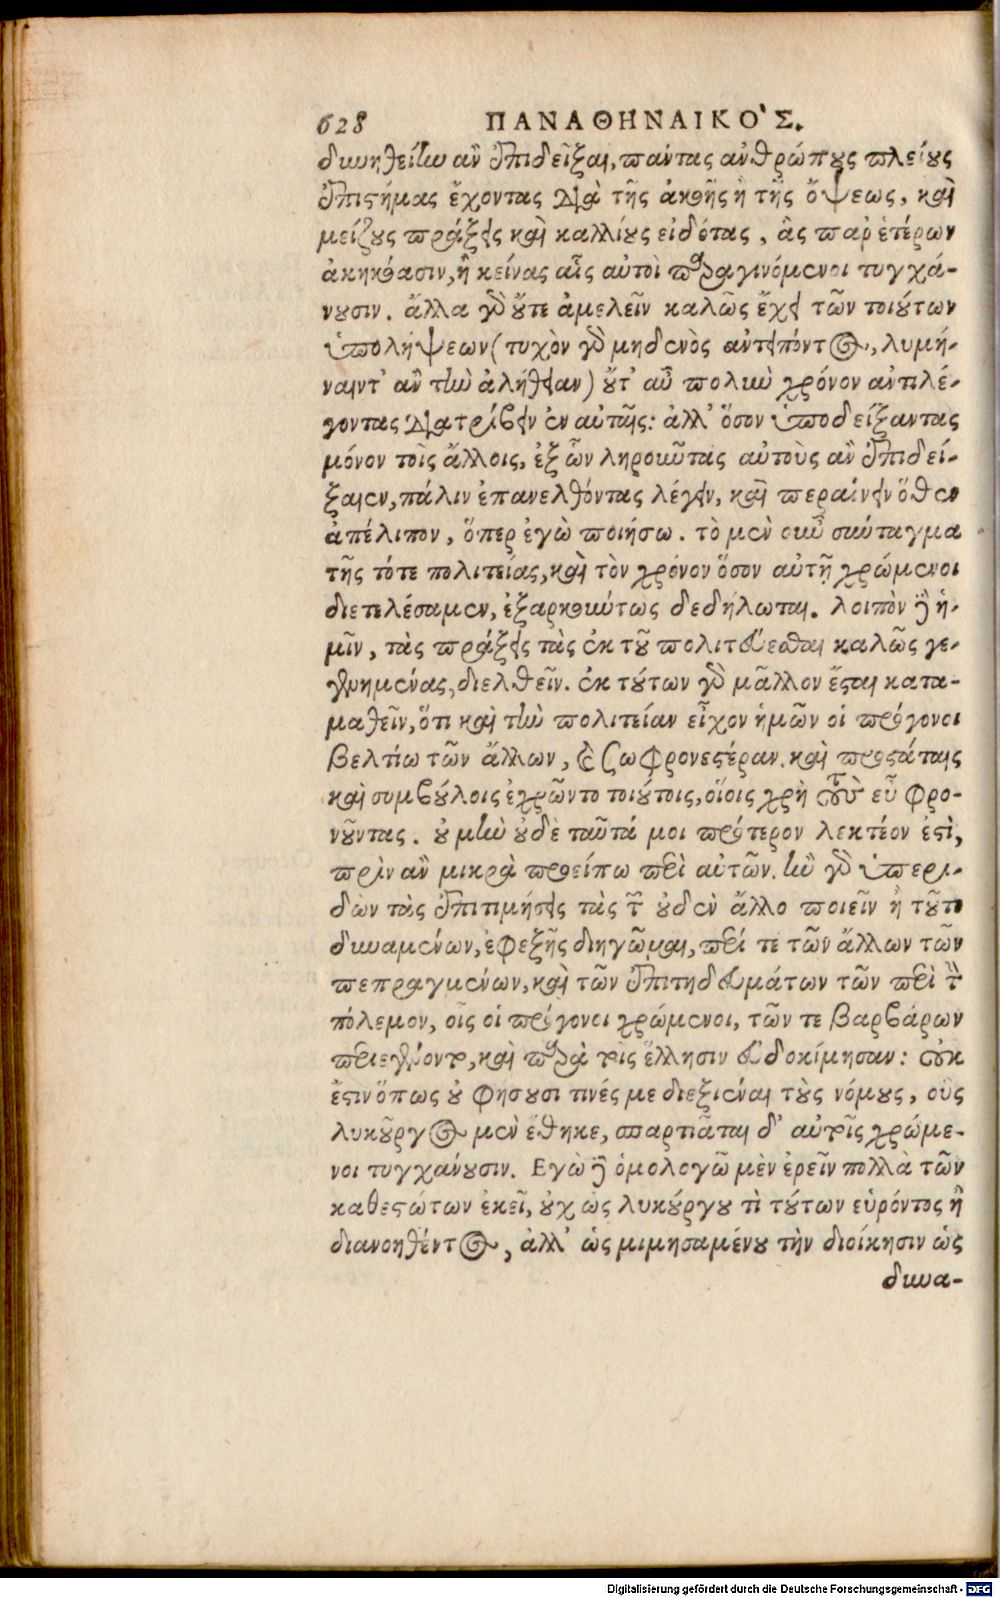 628 ΠΑΝΑΘΗΝΑΙΚΟ'Σ.
δυνηθείην ἂν ἐπιδεῖξαι, πάντας ἀνθρώπους πλείους
ἐπιστήμας ἔχοντας διὰ τῆς ἀκοῆς ἢ τῆς ὄψεως, καὶ
μείζους πράξεις καὶ καλλίους εἰδότας, ἃς παρ' ἑτέρων
ἀκηκόασιν, ἢ κείνας αἷς αὐτοὶ παραγινόμενοι τυγχά-
νουσιν. ἄλλα γὰρ οὔτε ἀμελεῖν καλῶς ἔχει τῶν τοιούτων
ὑπολήψεων (τυχὸν γὰρ μηδενὸς ἀντειπόντος, λυμή-
ναιντ' ἂν τὴν ἀλήθειαν) οὔτ' αὖ πολὺν χρόνον ἀντιλέ-
γοντας διατρίβειν ἐν αὐταῖς: ἀλλ' ὅσον ὑποδείξαντας
μόνον τοῖς ἄλλοις, ἐξ ὧν ληροῦντας αὐτοὺς ἂν ἐπιδεί-
ξαιεν, πάλιν ἐπανελθόντας λέγειν, καὶ περαίνειν ὅθεν
ἀπέλιπον, ὅπερ ἐγὼ ποιήσω. τὸ μὲν οὖν σύνταγμα
τῆς τότε πολιτείας, καὶ τὸν χρόνον ὅσον αὐτῇ χρώμενοι
διετελέσαμεν, ἐξαρκούντως δεδήλωται. λοιπὸν δὲ ἡ-
μῖν, τὰς πράξεις τὰς ἐκ τοῦ πολιτεύεσθαι καλῶς γε-
γενημένας, διελθεῖν. ἐκ τούτων γὰρ μᾶλλον ἔσται κατα-
μαθεῖν, ὅτι καὶ τὴν πολιτείαν εἶχον ἡμῶν οἱ πρόγονοι
βελτίω τῶν ἄλλων, καὶ σωφρονεστέραν. καὶ προστάταις
καὶ συμβούλοις ἐχρῶντο τοιούτοις, οἵοις χρὴ τοὺς εὖ φρο-
νοῦντας. οὐ μὴν οὐδὲ ταῦτά μοι πρότερον λεκτέον ἐστὶ,
πρὶν ἂν μικρὰ προείπω περὶ αὐτῶν. ἢν γὰρ ὑπερι-
δὼν τὰς ἐπιτιμήσεις τὰς τῶν οὐδὲν ἄλλο ποιεῖν ἢ τοῦτο
δυναμένων, ἐφεξῆς διηγῶμαι, περί τε τῶν ἄλλων τῶν
πεπραγμένων, καὶ τῶν ἐπιτηδευμάτων τῶν περὶ τὸν
πόλεμον, οἷς οἱ πρόγονοι χρώμενοι, τῶν τε βαρβάρων
περιεγένοντο, καὶ παρὰ τοῖς ἕλλησιν εὐδοκίμησαν: οὐκ
ἔστιν ὅπως οὐ φήσουσί τινές με διεξιέναι τοὺς νόμους, οὓς
λυκοῦργος μὲν ἔθηκε, σπαρτιᾶται δ' αὐτοῖς χρώμε-
νοι τυγχάνουσιν. Εγὼ δὲ ὁμολογῶ μὲν ἐρεῖν πολλὰ τῶν
καθεστώτων ἐκεῖ, οὐχ ὡς λυκούργου τὶ τούτων εὑρόντος ἢ
διανοηθέντος, ἀλλ' ὡς μιμησαμένου τὴν διοίκησιν ὡς
δυνα-
Digitalisierung gefördert durch die Deutsche Forschungsgemeinschaft - DFG